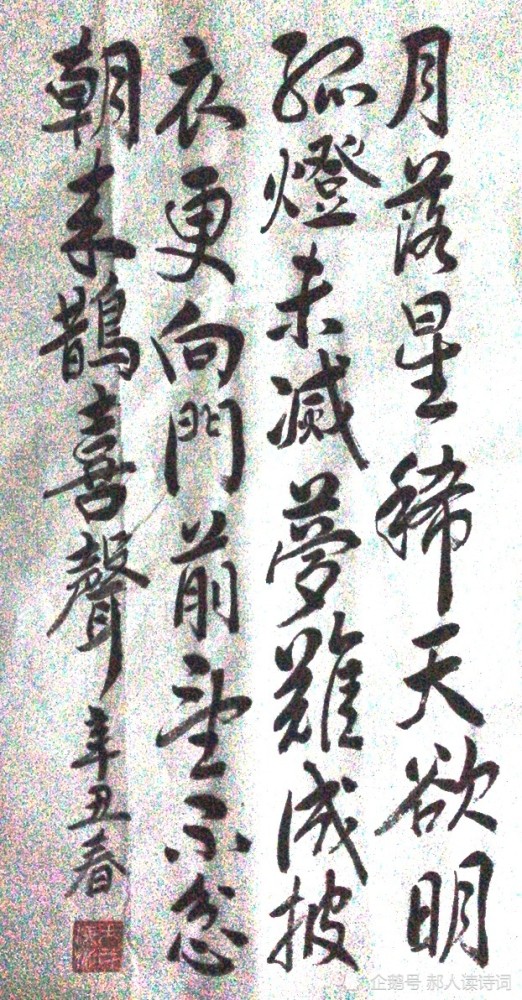 月落星稀天欲明
孤燈未滅夢難成披
衣更向門前望不忿
朝来鵲喜聲
辛丑春
企鹅号 郝人读诗词